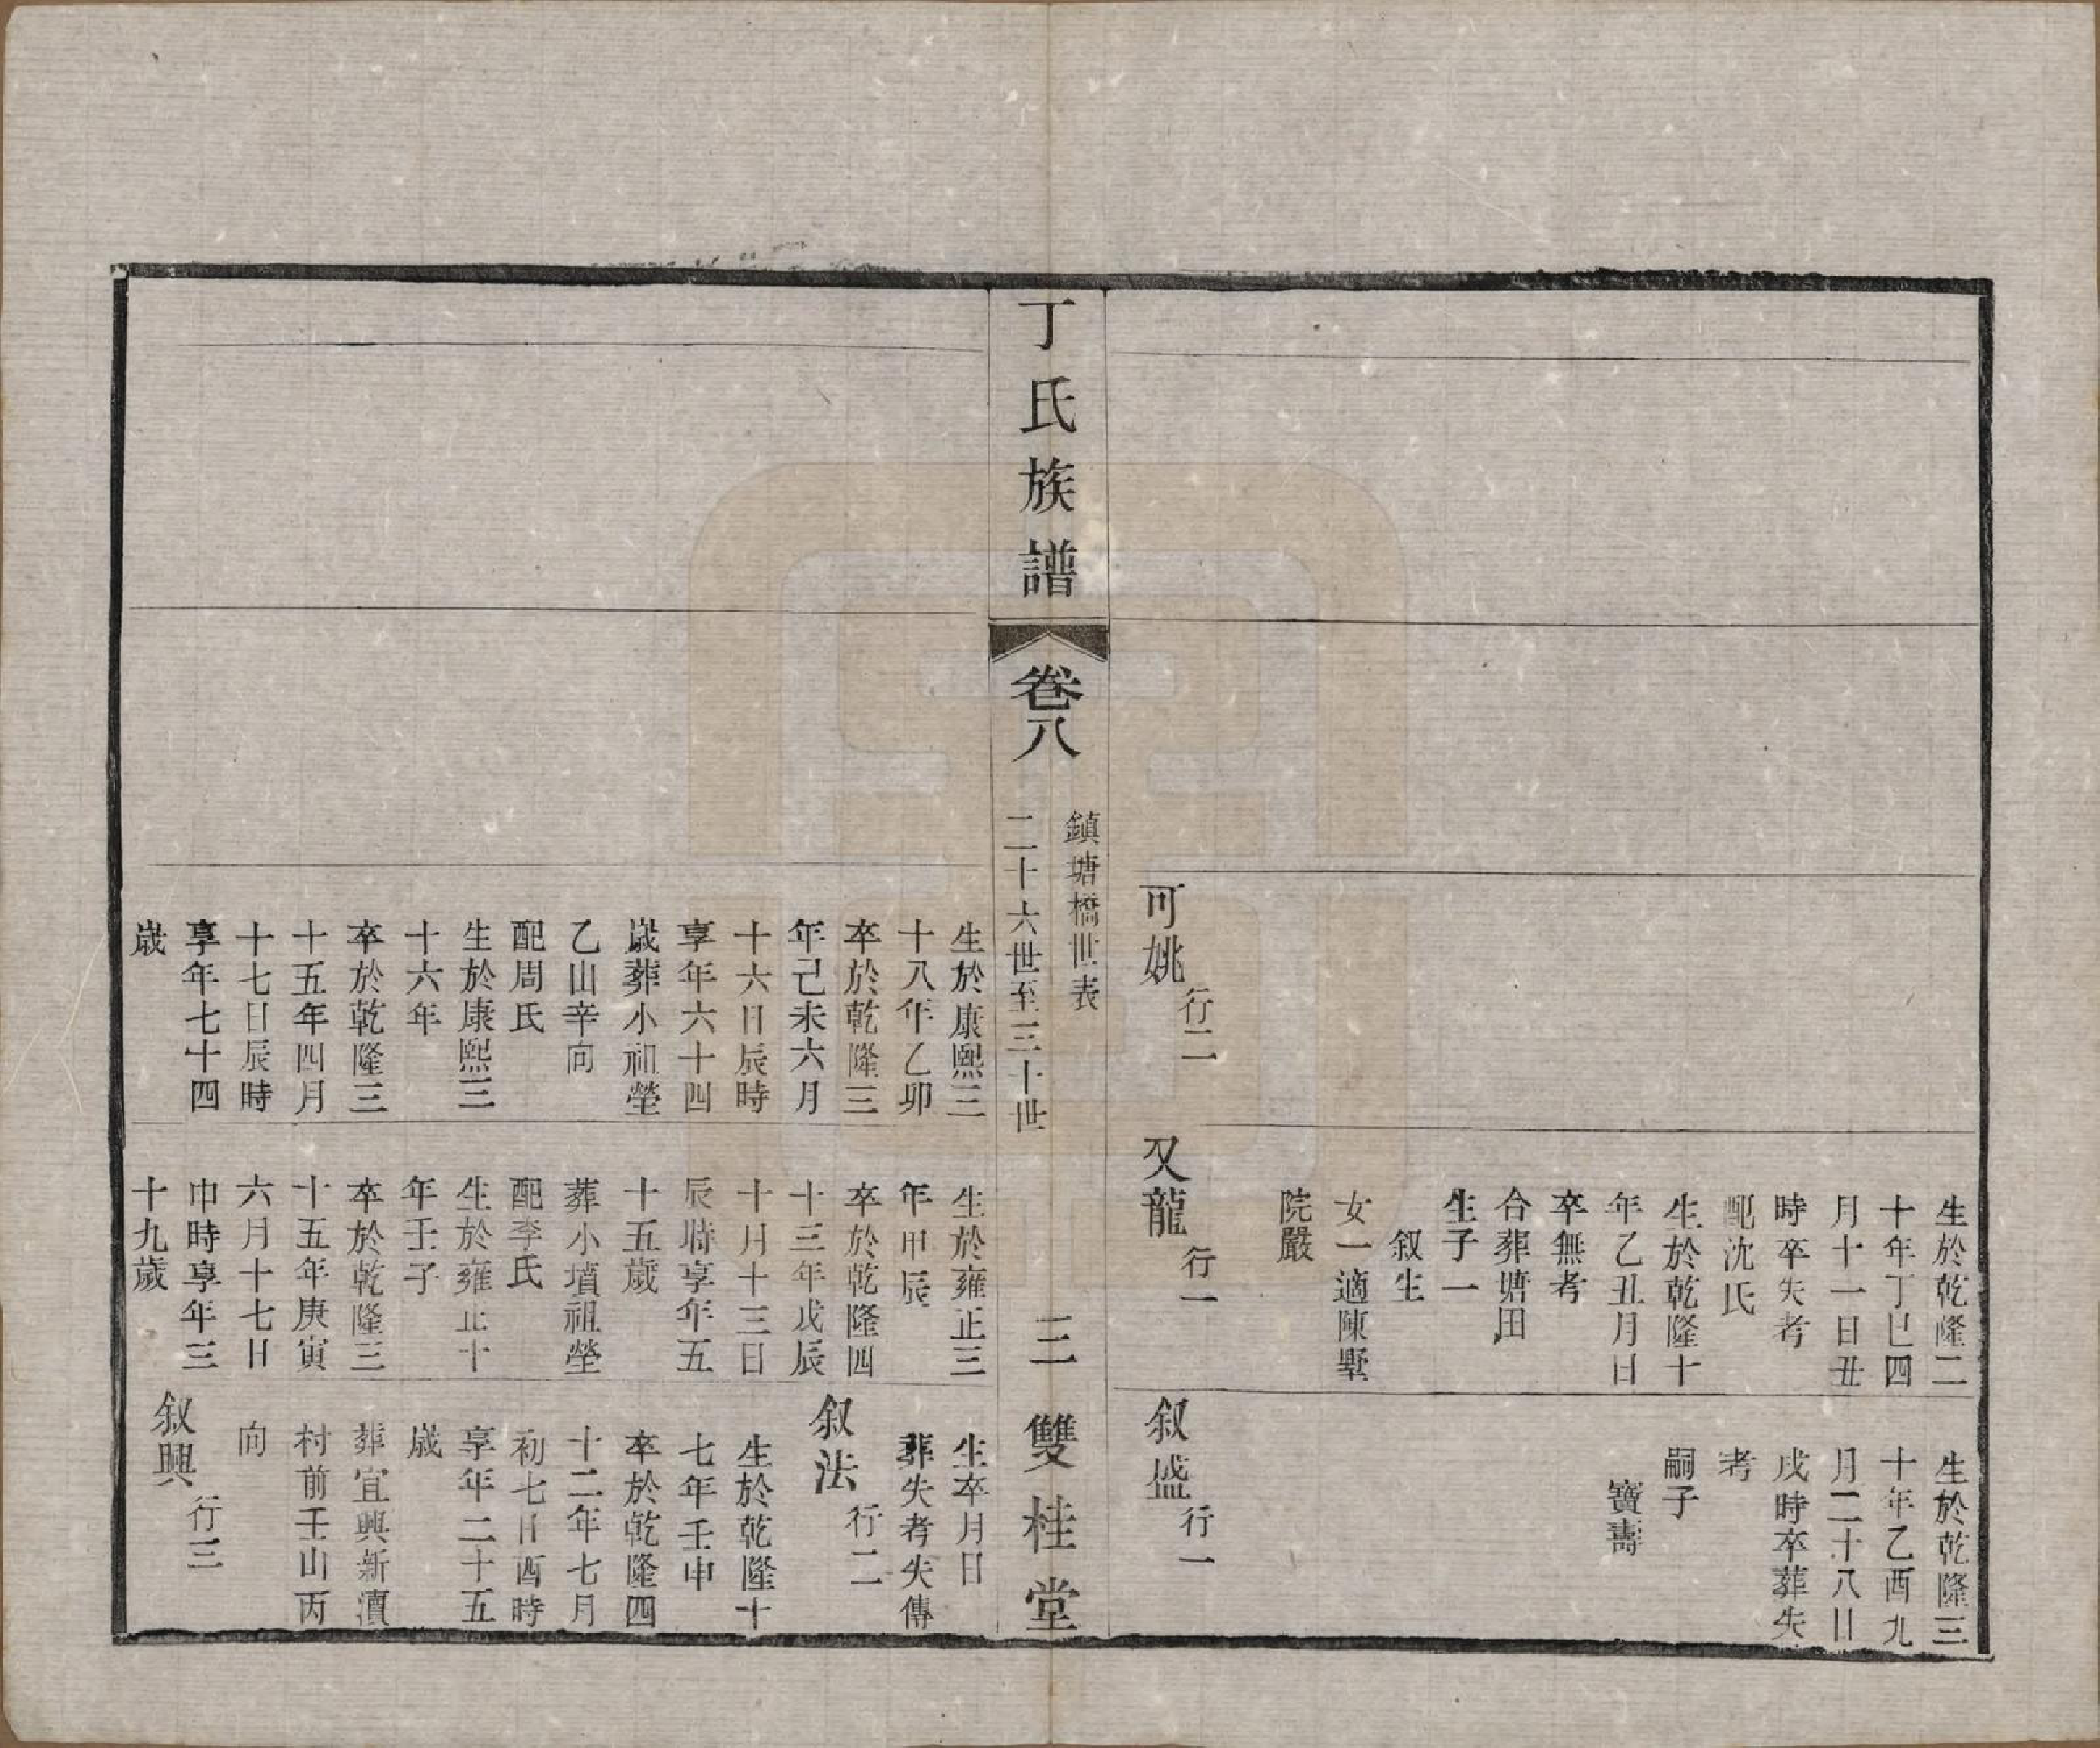 可姚 行二
生於乾隆二
十年丁巳四
月十一日丑
時卒失考
配沈氏
生於乾隆十
年乙丑月日
卒無考
合葬塘田
生子一
叙生
女一適陳墅
院嚴
又龍 行一
生於乾隆三
十年乙酉九
月二十八日
戌時卒葬失
考
嗣子
寶壽
叙盛 行一
丁氏族譜
卷八
鎮塘橋世表
二十六世至三十世
三
雙桂堂
生於康熙三
十八年乙卯
卒於乾隆三
年己未六月
十六日辰時
享年六十四
歲葬小祖塋
乙山辛向
配周氏
生於康熙三
十六年
卒於乾隆三
十五年四月
十七日辰時
享年七十四
歲
生於雍正三
年甲辰
卒於乾隆四
十三年戊辰
十月十三日
辰時享年五
十五歲
葬小墳祖塋
配李氏
生於雍正十
年壬子
卒於乾隆三
十五年庚寅
六月十七日
巾時享年三
十九歲
生卒月日
葬失考失傳
叙法 行二
生於乾隆十
七年壬申
卒於乾隆四
十二年七月
初七日酉時
享年二十五
歲
葬宜興新瀆
村前壬山丙
向
叙興 行三